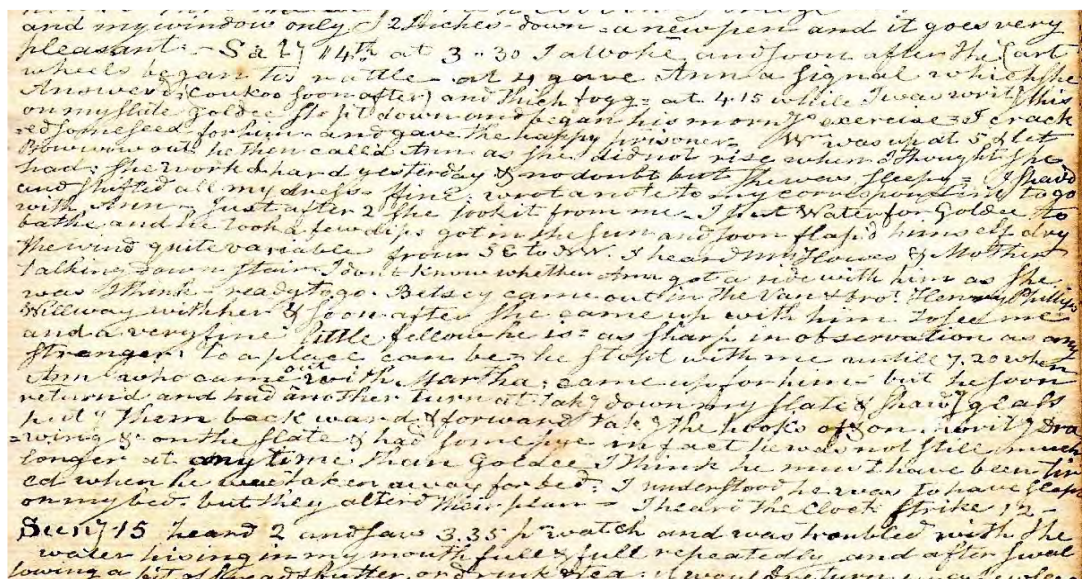 and my window only 2 Inches down - a new pen and it goes very
pleasant: - Saty 14th at 3..30 I awoke and soon after the Cart
wheels began to rattle - at 4 gave Ann a signal which she
Answerd: (Coukoo soon after) and thich fogg = at 4.15 while I was writg this
on my slate Goldee Stept down and began his morng exercise = I crack
=ed some seed for him - and gave the happy prisoner - Wm was up at 5 & let
out he then called Ann as she did not rise when I thought she
had: she workd hard yesterday & no doubt but she was sleepy = I shavd
and shifted all my dress - fine: wrote a note to my to go
with Ann - Just after 2 she took it from me - I put Water for Goldee to
bathe and he took a few dips got in the sun and soon flap'd himself dry
the wind quite variable from SE to NW. I heard Mr Flowes & Mother
talking down stair I don't know whether Ann got a ride with him as she
was I think - ready to go - Betsey came out in the Van & bro. Henry Phillips
Willway with her & soon after she came up with him to see me
and a very fine little fellow he is = as sharp in observation as any
stranger to a place can be = he stopt with me untill 7.20 when
Ann who came out with Martha: came up for him - but he soon
returnd and had another turn at takg down my slate & shavg glass
hied them back ward & forward takg the hooks of & on. writg Dra
=wing & on the slate & had some in fact he was not still much
longer at any time than Goldee I think he must have been tir
ed when he was taken away for bed: I understood he was to have slept
on my bed. but they alterd their plan - I heard the Clock strike 12 -
Suny 15 heard 2 and saw 3.35 pr watch and was troubled with the
water rising in my mouth full & full repeatedly and after swal
lowing a bit of bread & butter, or drink & tea: it would return